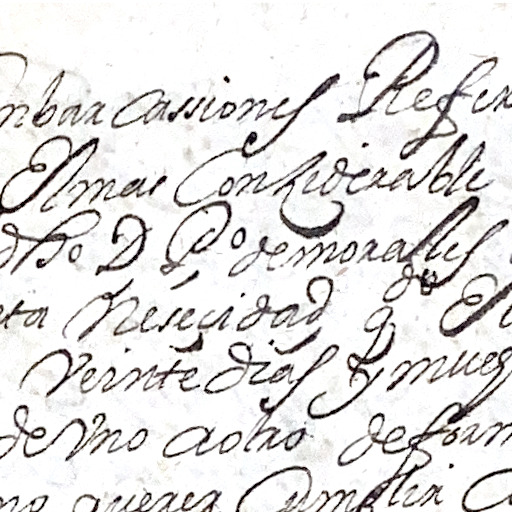 nbarcassiones Refer
El mas Conziderable
dho D P.o de morales
eta Nesecidad q do El
Veinte dias y mues
de Vno a otro de form
no querer Cumplir